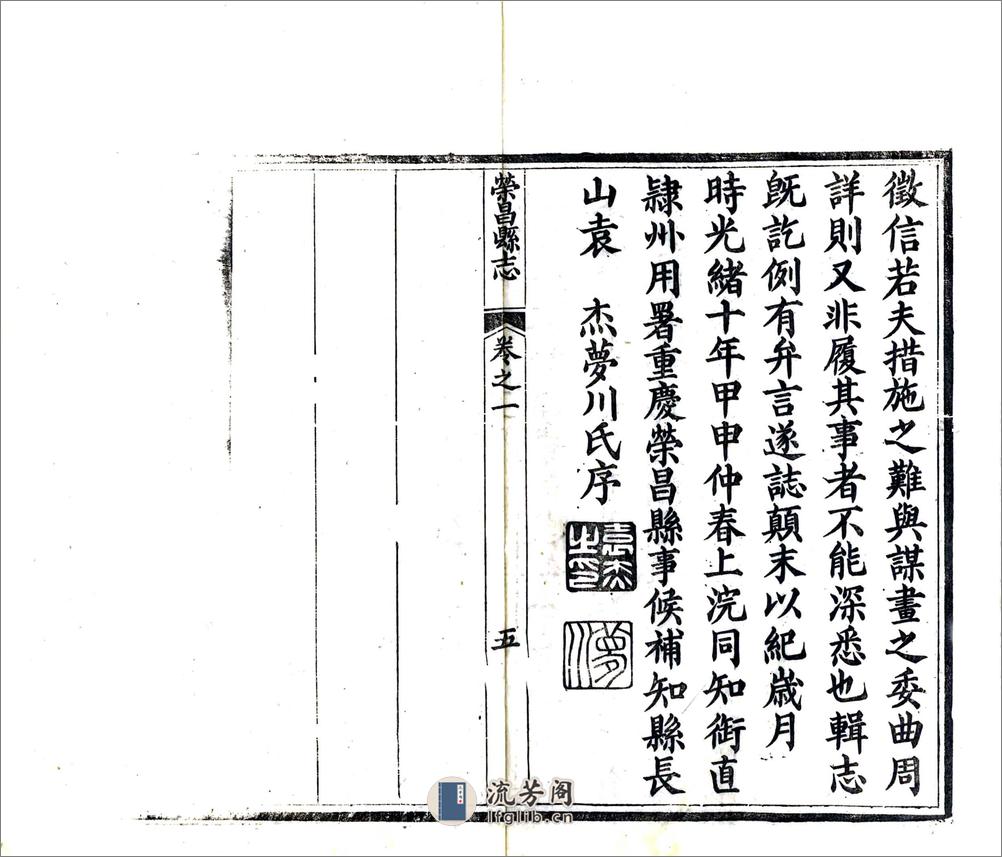 徵信若夫措施之難與謀畫之委曲周
詳則又非履其事者不能深悉也輯志
既訖例有弁言遂誌顛末以紀歲月
時光緒十年甲申仲春上浣同知銜直
隸州用署重慶榮昌縣事候補知縣長
山袁 杰夢川氏序
袁杰之印
夢川
榮昌縣志 卷之一 五
流芳阁
lfglib.cn